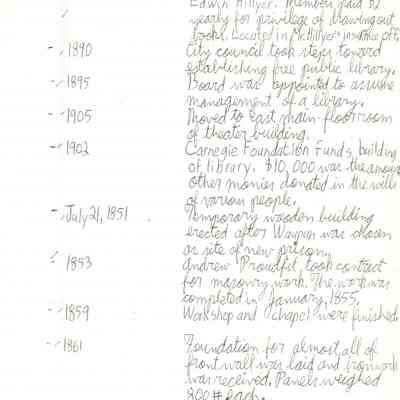 Edwin Hillyer. Member paid $2
yearly for privilege of drawing out
books. Located in Mr. Hillyer's office
- 1890 City council took steps toward
establishing free public library.
- 1895 Board was appointed to assume
management of a library.
- 1905 Moved to East main-floor room
of theater building.
- 1902 Carnegie Foundation Funds, building
of library. $10,000 was the amount
other monies donated in the wills
of various people.
- July 21, 1851 Temporary wooden building
erected after Waupun was chosen
as site of new prison.
- 1853 Andrew Proudfit took contract
for masonry work. The work was
completed in January, 1855.
- 1859 Workshop and chapel were finished
- 1861 Foundation for almost all of
front wall was laid and ironwork
was received. Panels weighed
800 # each.